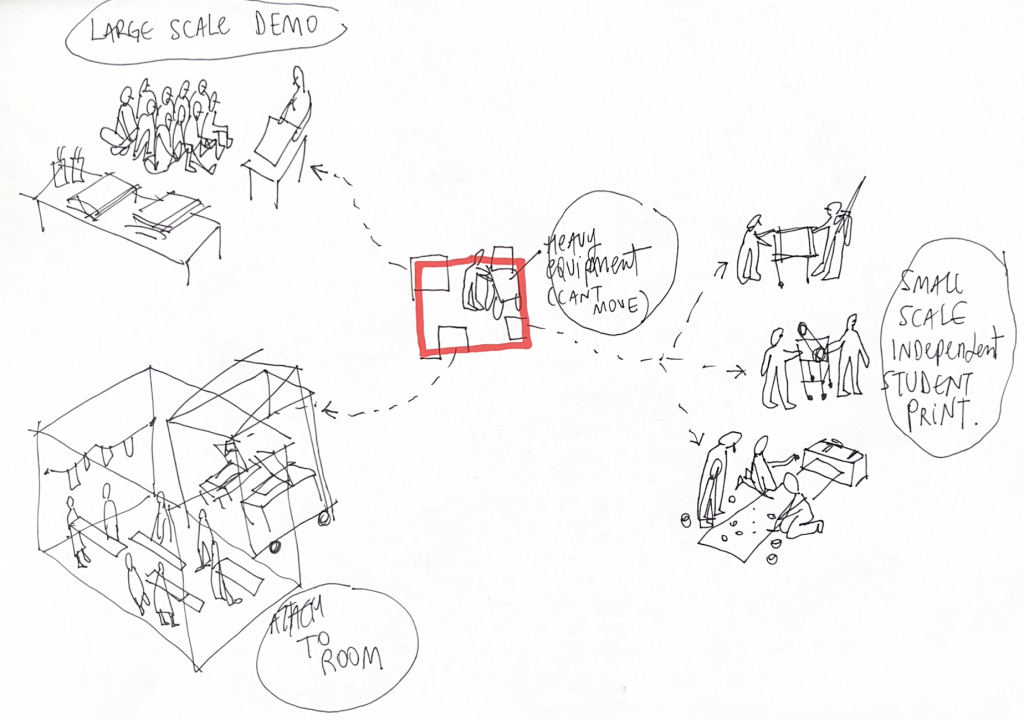 LARGE SCALE DEMO
HEAVY
EQUIPMENT
(CANT
MOVE)
SMALL
SCALE
INDEPENDENT
STUDENT
PRINT.
ATTACH
TO
ROOM